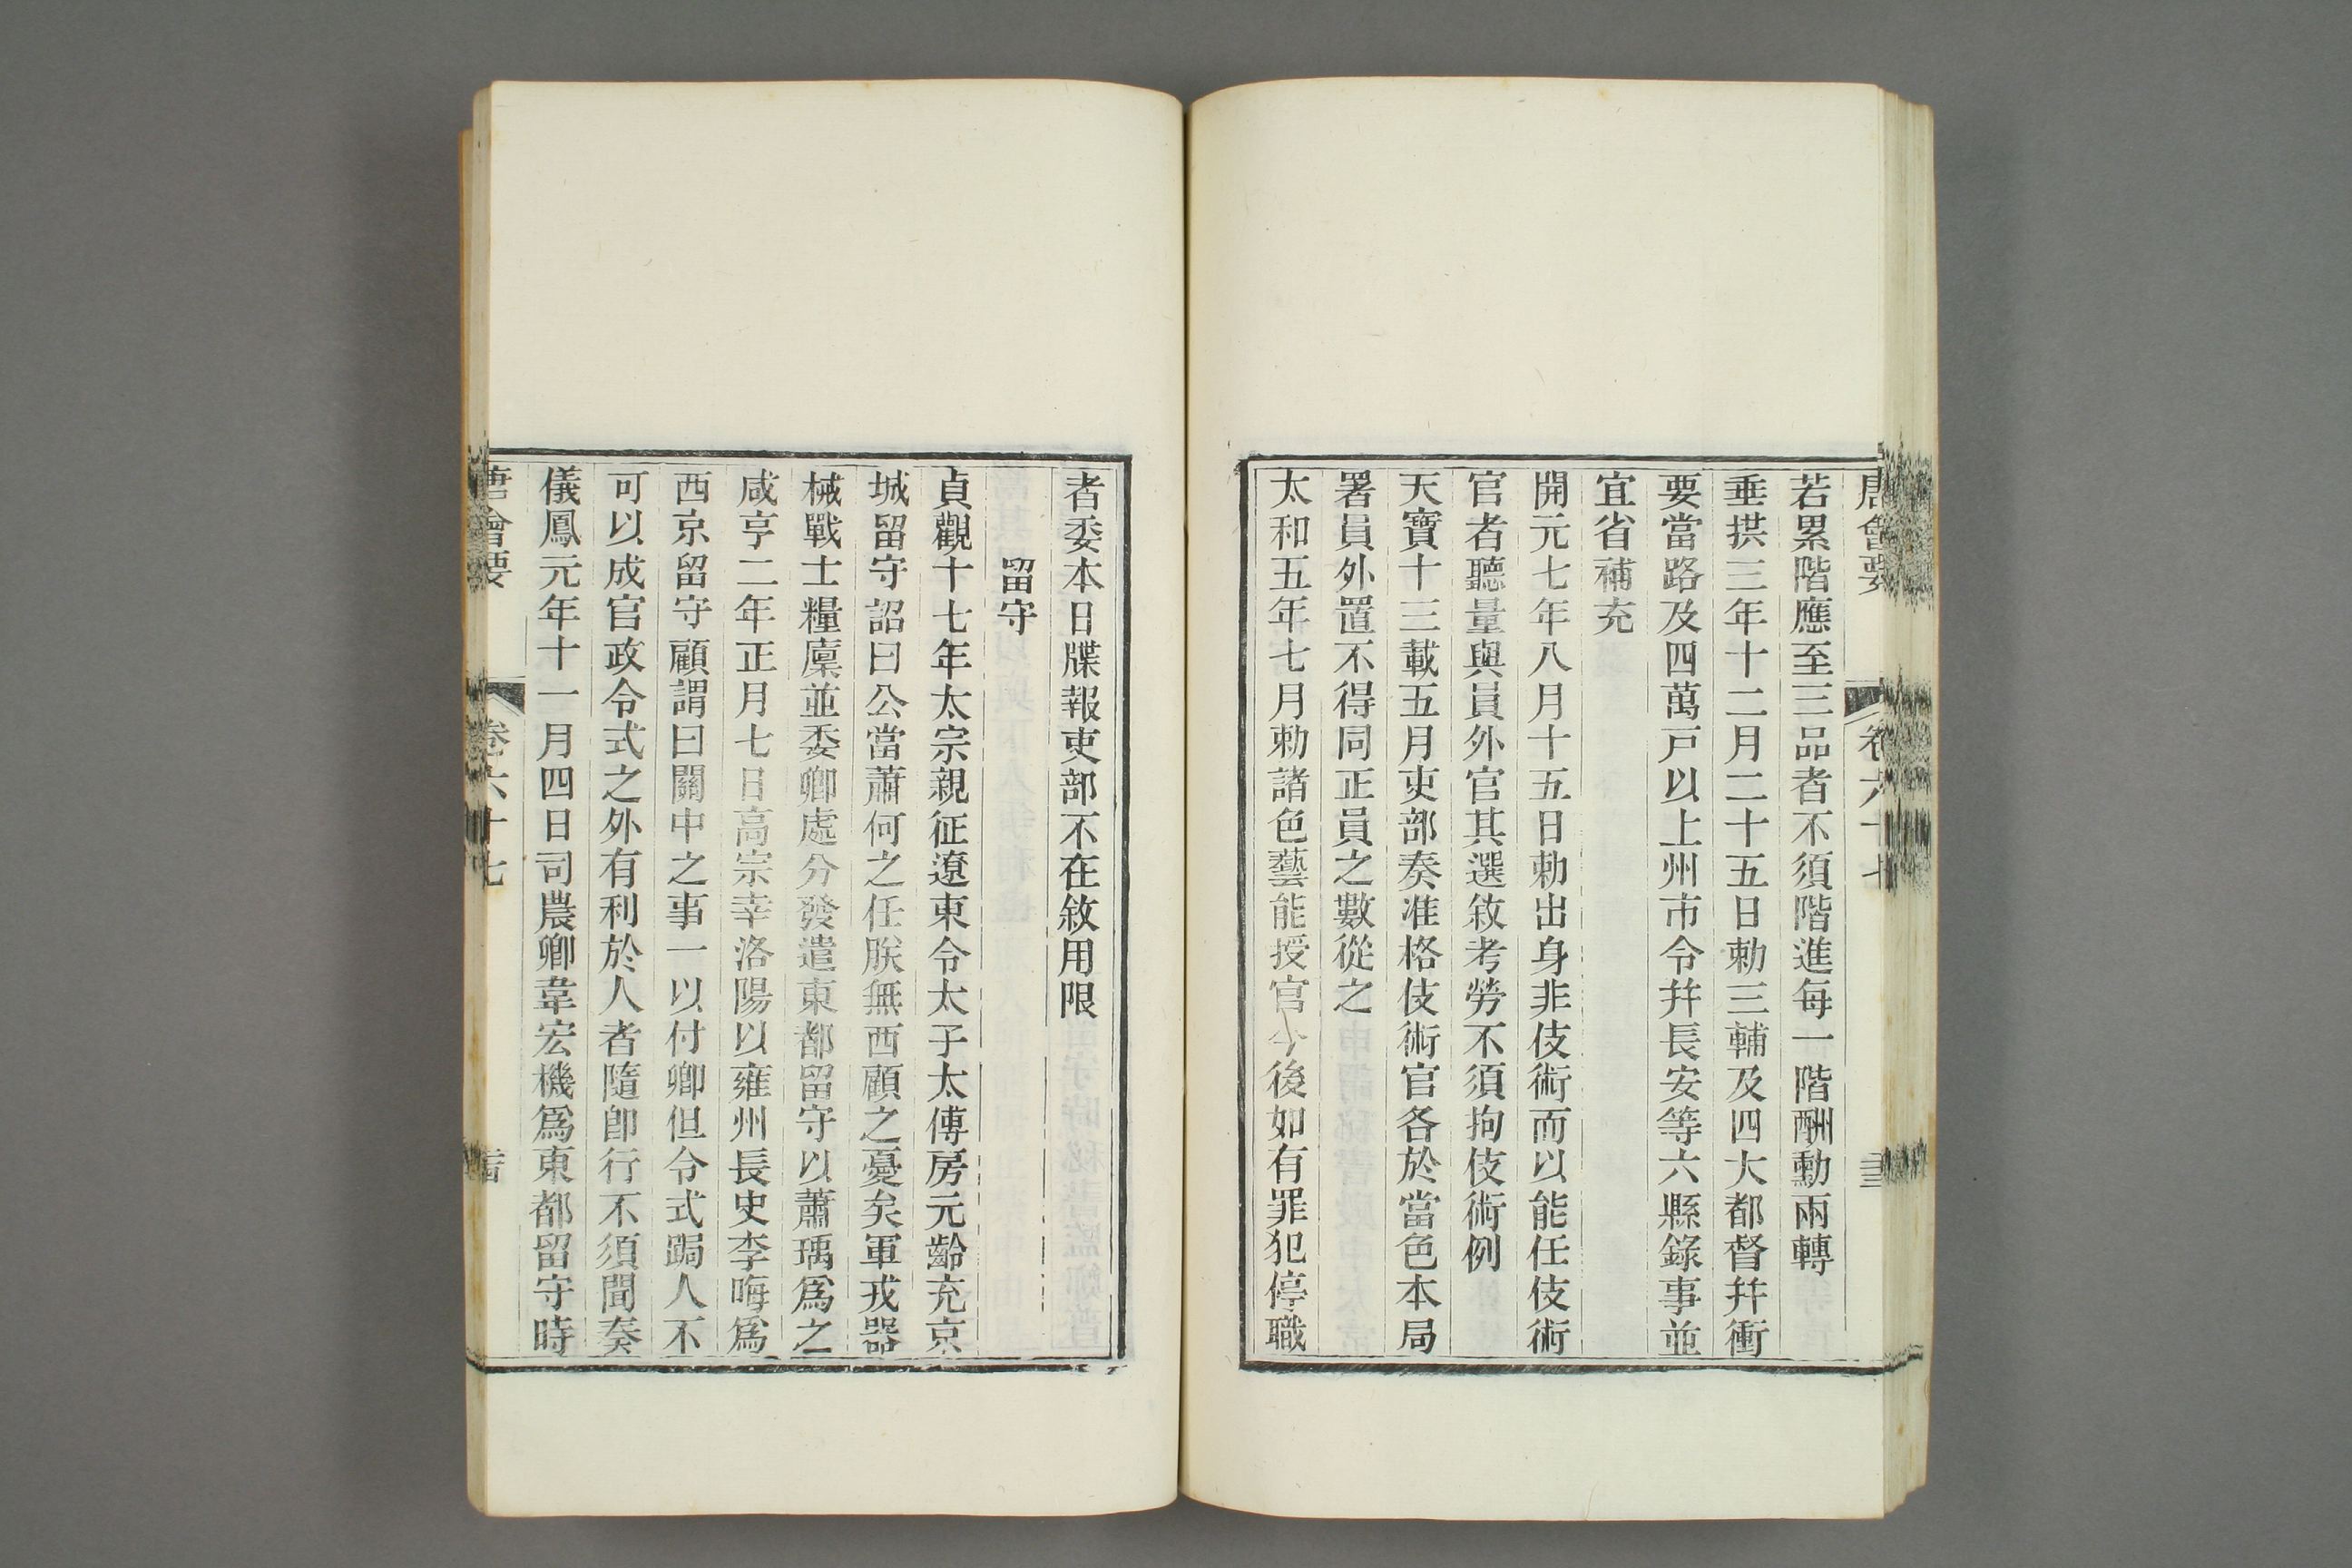 唐會要 卷六十七
若累階應至三品者不須階進每一階酬勳兩轉
垂拱三年十二月二十五日勅三輔及四大都督幷衝
要當路及四萬戸以上州市令幷長安等六縣錄事並
宜省補充
開元七年八月十五日勅出身非伎術而以能任伎術
官者聽量與員外官其選敘考勞不須拘伎術例
天寶十三載五月吏部奏准格伎術官各於當色本局
署員外置不得同正員之數從之
太和五年七月勅諸色藝能授官今後如有罪犯停職
者委本日牒報吏部不在敘用限
留守
貞觀十七年太宗親征遼東令太子太傅房元齡充京
城留守詔曰公當蕭何之任朕無西顧之憂矣軍戎器
械戰士糧廩並委卿處分發遣東都留守以蕭瑀爲之
咸亨二年正月七日高宗幸洛陽以雍州長史李晦爲
西京留守顧謂曰關中之事一以付卿但令式跼人不
可以成官政令式之外有利於人者隨卽行不須聞奏
儀鳳元年十一月四日司農卿韋宏機爲東都留守時
唐會要 卷六十七